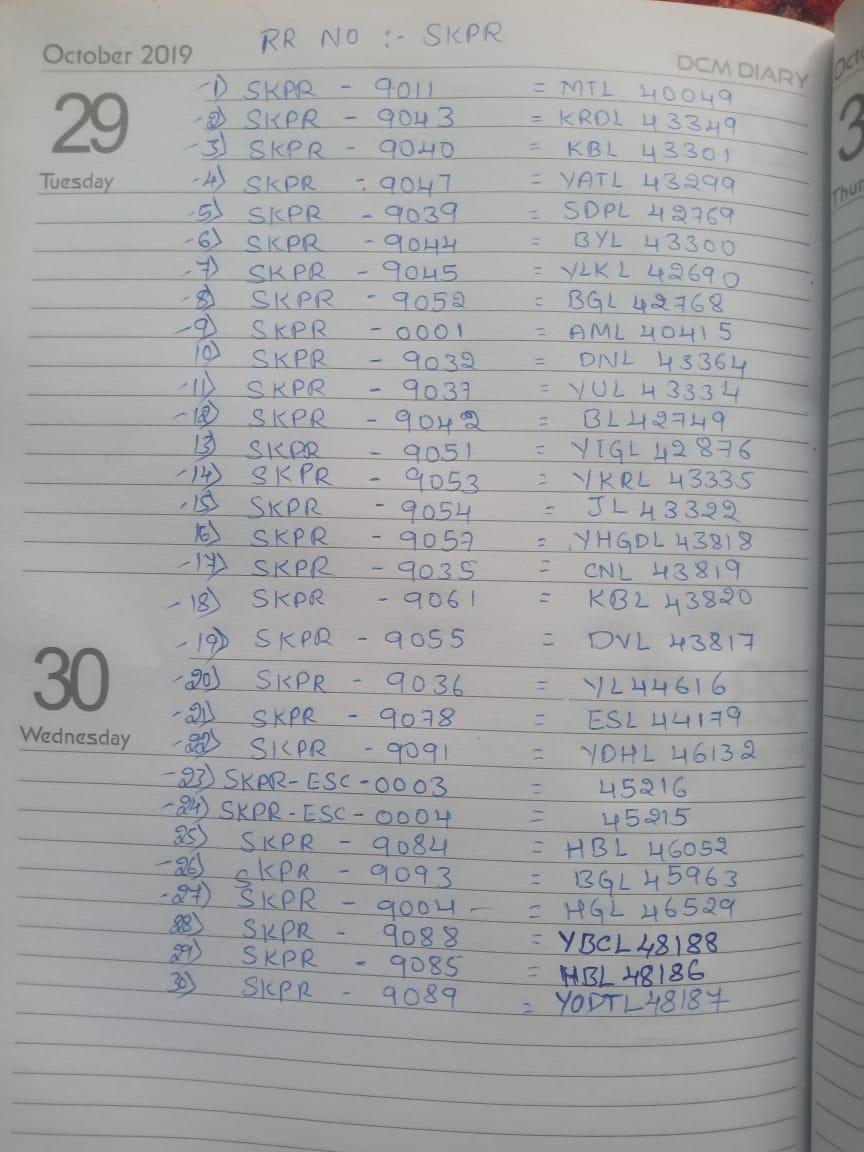 RR NO :- SKPR
October 2019
DCM DIARY
29
Tuesday
-1) SKPR - 9011 = MTL 40049
-2) SKPR - 9043 = KRDL 43349
-3) SKPR - 9040 = KBL 43301
-4) SKPR - 9047 = YATL 43299
-5) SKPR - 9039 = SDPL 42769
-6) SKPR - 9044 = BYL 43300
-7) SKPR - 9045 = YLKL 42690
-8) SKPR - 9052 = BGL 42768
-9) SKPR - 0001 = AML 40415
10) SKPR - 9032 = DNL 43364
-11) SKPR - 9037 = YUL 43334
-12) SKPR - 9042 = BL 42749
13) SKPR - 9051 = YIGL 42876
-14) SKPR - 9053 = YKRL 43335
-15) SKPR - 9054 = JL 43322
16) SKPR - 9057 = YHGDL 43818
-17) SKPR - 9035 = CNL 43819
-18) SKPR - 9061 = KBL 43820
-19) SKPR - 9055 = DVL 43817
30
Wednesday
-20) SKPR - 9036 = YL 44616
-21) SKPR - 9078 = ESL 44179
-22) SKPR - 9091 = YDHL 46132
-23) SKPR-ESC-0003 = 45216
-24) SKPR-ESC-0004 = 45215
25) SKPR - 9084 = HBL 46052
-26) SKPR - 9093 = BGL 45963
-27) SKPR - 9004 - = HGL 46529
28) SKPR - 9088 = YBCL 48188
29) SKPR - 9085 = HBL 48186
30) SKPR - 9089 = YODTL 48187
Octo
3
Thur